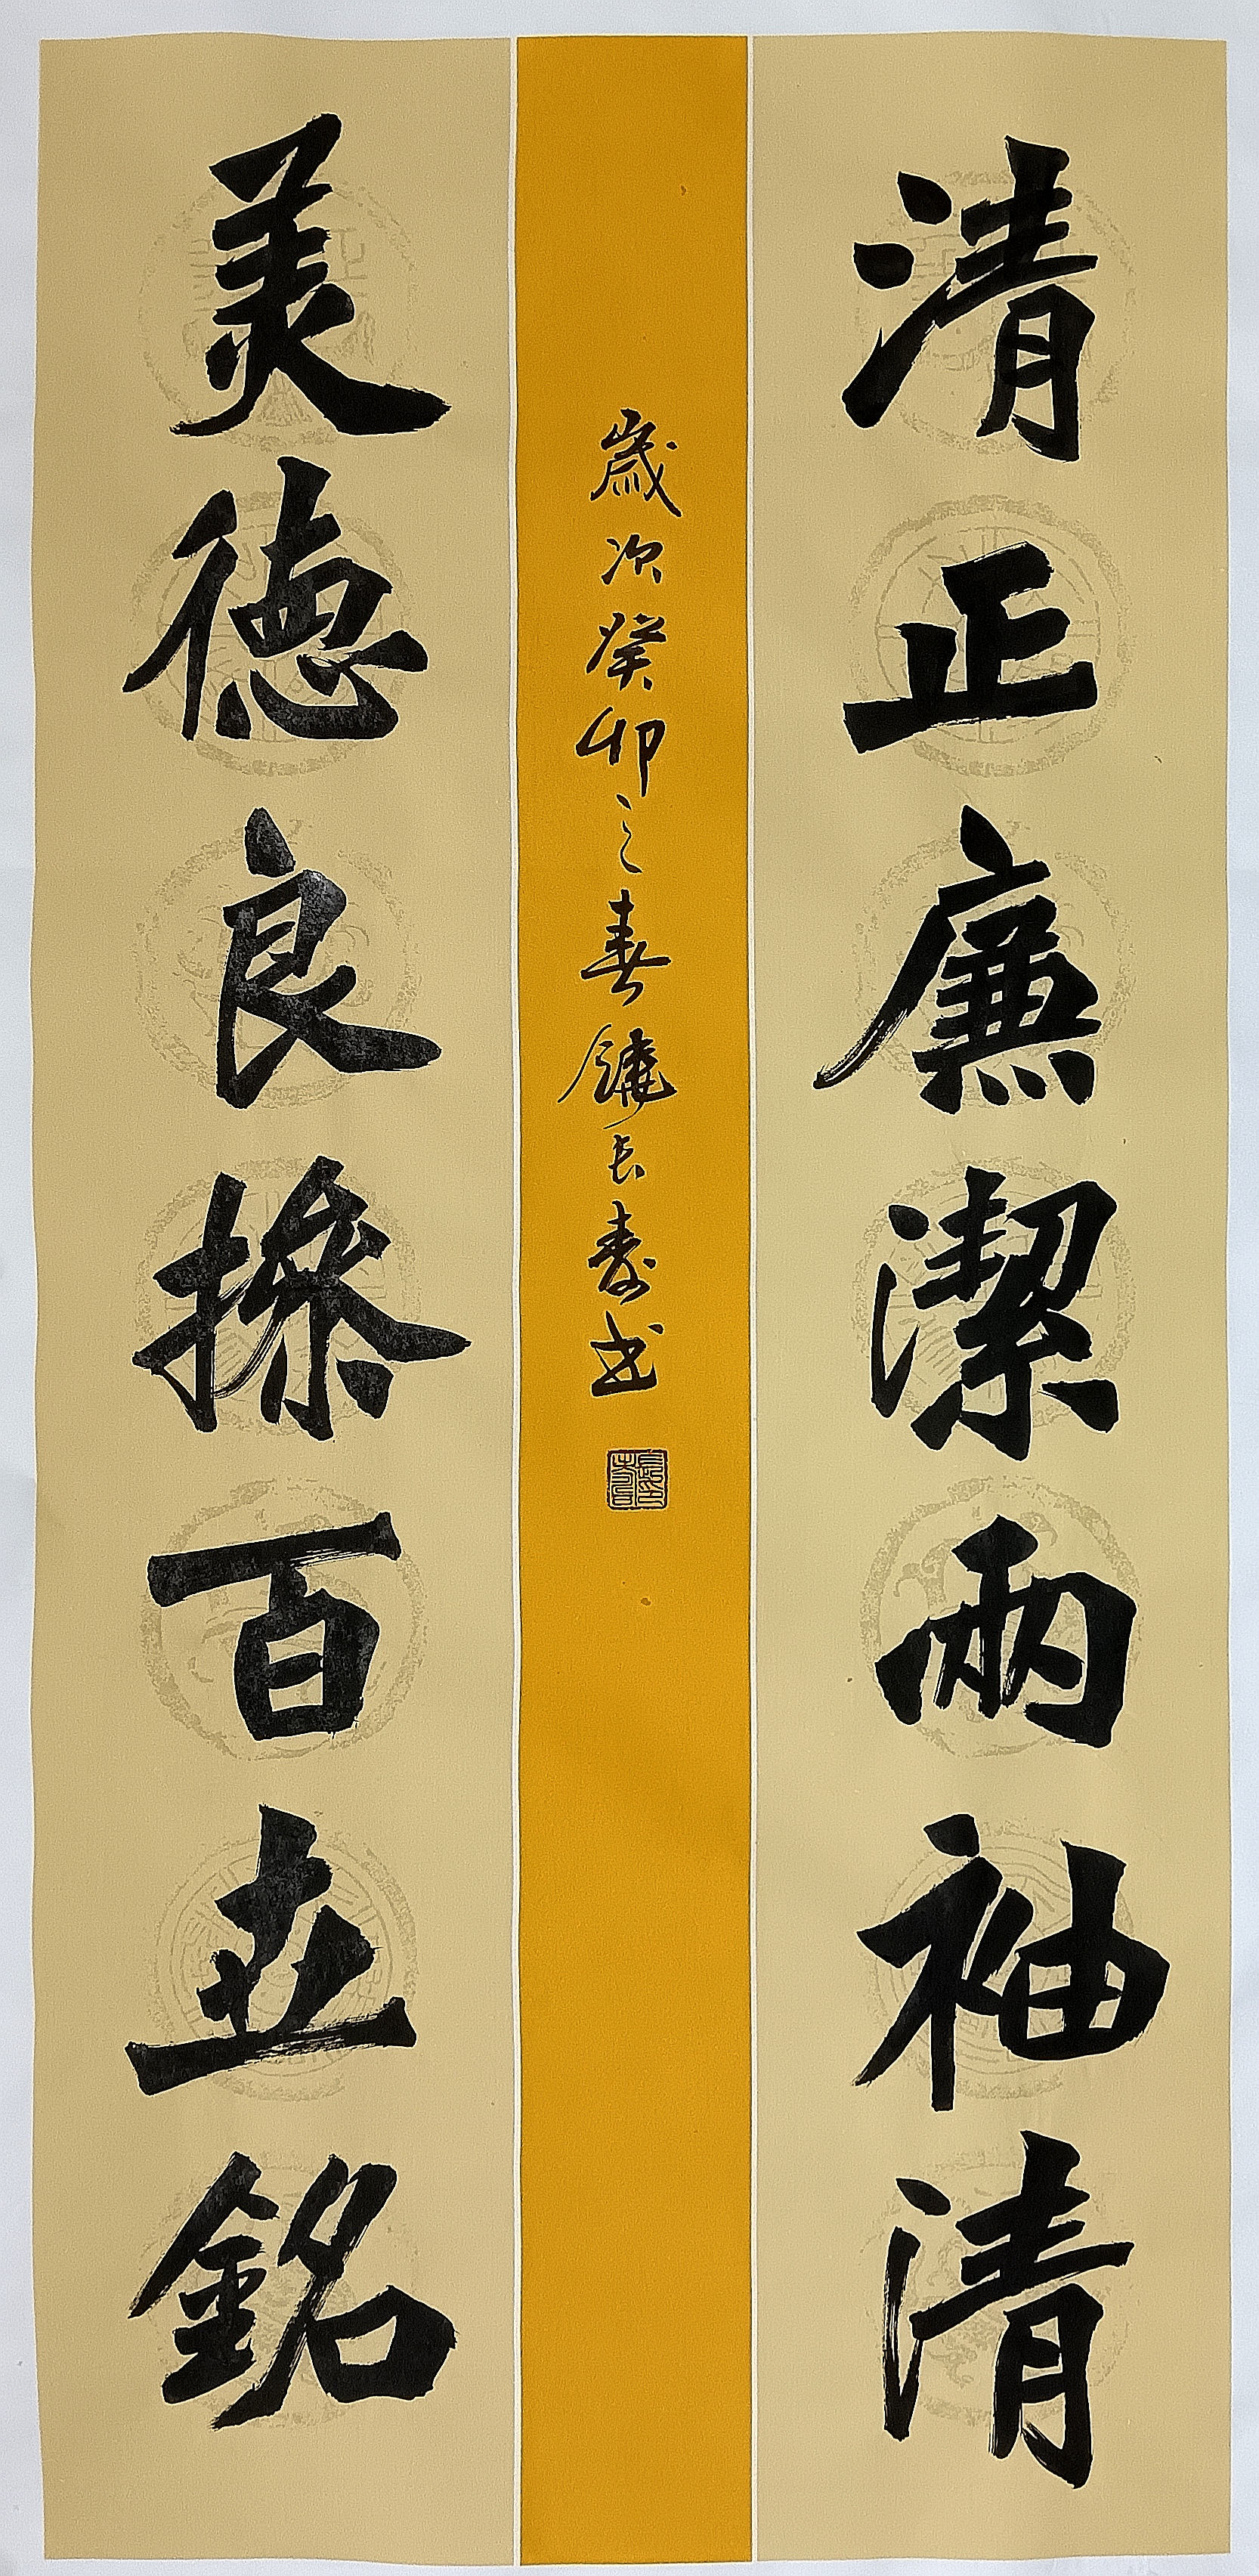 清正廉潔兩袖清
美德良操百世銘
歲次癸卯之春鐃長壽書